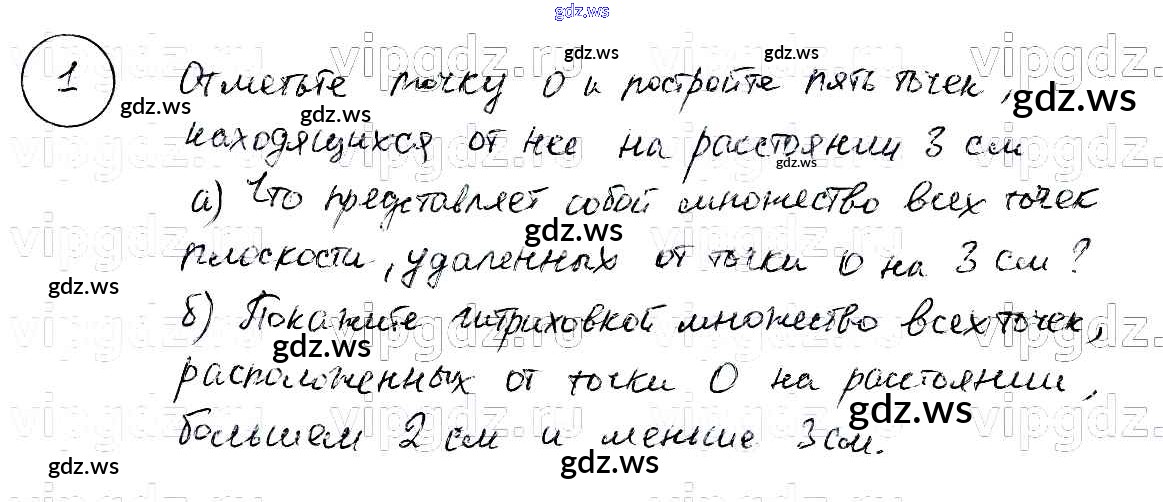 gdz.ws
1 Отметьте точку О и постройте пять точек,
находящихся от нее на расстоянии 3 см
а) Что представляет собой множество всех точек
плоскости, удаленных от точки О на 3 см?
б) Покажите штриховкой множество всех точек,
расположенных от точки О на расстоянии,
большем 2 см и меньше 3 см.
vipgdz.ru
gdz.ws